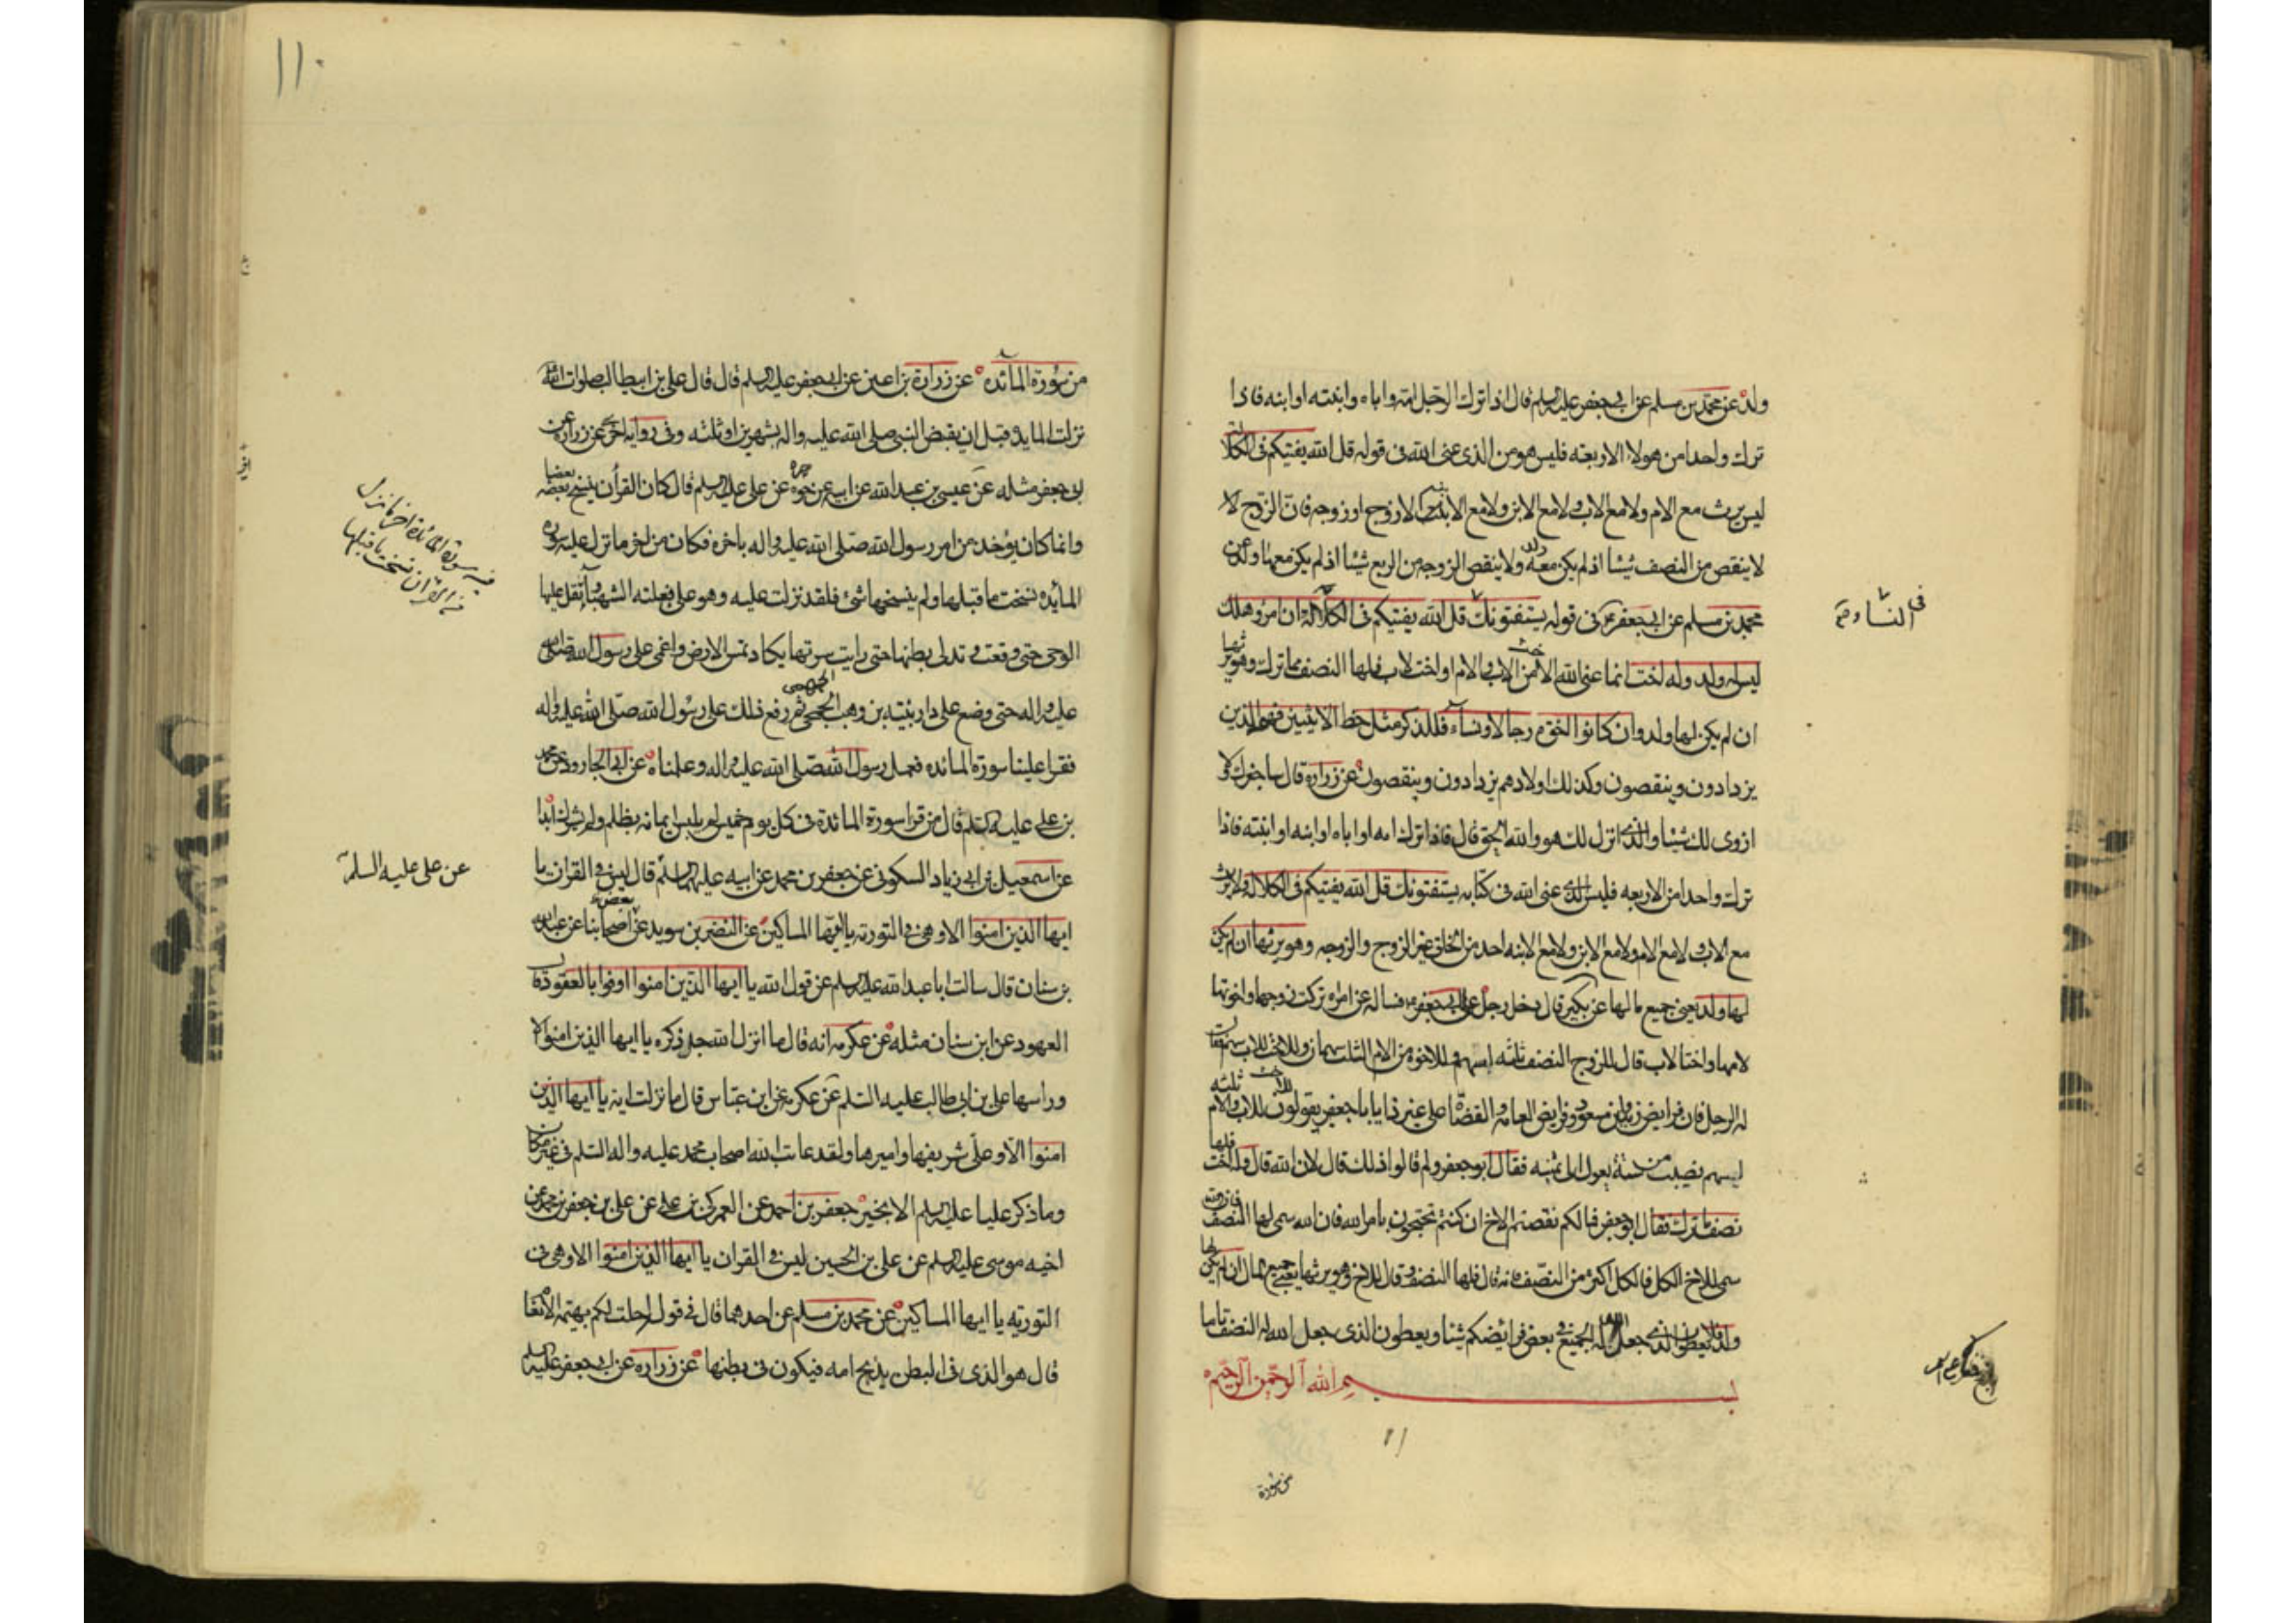 ولد عن محمد بن مسلم عن ابي جعفر عليه السلم قال اذا ترك الرجل امه واباه وابنته او ابنه فاذا
ترك واحدا من هولاء الاربعة فليس هو من الذى عنى الله فى قوله قل الله يفتيكم فى الكلالة
ليس يرث مع الام ولا مع الاب ولا مع الابن ولا مع الابنة الا زوج او زوجه فان الزوج لا
لا ينقص من النصف شيئا اذ لم يكن معه ولد ولا ينقص الزوجه من الربع شيئا اذ لم يكن معها ولد عن
محمد بن مسلم عن ابي جعفر فى قوله يستفتونك قل الله يفتيكم فى الكلالة ان امرؤ هلك
ليس له ولد وله اخت انما عنى الله الاخت من الاب والام او اخت لاب فلها النصف مما ترك وهو يرثها
ان لم يكن لها ولد وان كانوا اخوة رجالا ونساء فللذكر مثل حظ الانثيين فهم الذين
يزدادون وينقصون وكذلك اولادهم يزدادون وينقصون عن زراره قال ساخبرك ولا
ازوى لك شيئا والذى انزل لك هو والله الحق قال فاذا ترك امه او اباه او ابنه او ابنته فاذا
ترك واحدا من الاربعه فليس الذى عنى الله فى كتابه يستفتونك قل الله يفتيكم فى الكلاله ولا يرث
مع الاب ولا مع الام ولا مع الابن ولا مع الابنه احد من الخلق غير الزوج والزوجه وهو يرثها ان لم يكن
لها ولد يعنى جميع مالها عن بكير قال دخل رجل على ابي جعفر فساله عن امراه تركت زوجها واخوتها
لامها واختا لاب قال للزوج النصف ثلثه اسهم وللاخوة من الام الثلث سهمان وللاخت للاب سهم فقال
له الرجل فان فرايض زيد وابن مسعود وفرايض العامه والقضاة على غير ذا يا با جعفر يقولون للاخت للاب والام ثلثه
اسهم نصيب من ستة يعول الى ثمنيه فقال ابو جعفر ولم قالوا ذلك قال لان الله قال وله اخت فلها
نصف ما ترك فقال ابو جعفر فما لكم نقصتم الاخ ان كنتم تحتجون بامر الله فان الله سمى لها النصف
سمى للاخ الكل فالكل اكثر من النصف فانه قال فلها النصف وقال للاخ وهو يرثها يعنى جميع المال ان لم يكن لها
ولد فلا يعطون الذى جعل الله له الجميع فى بعض فرائضكم شيئا ويعطون الذى جعل الله له النصف تاما
بسم الله الرحمن الرحيم
من سورة
فى النساء
١١٠
من سورة المائده عن زرارة بن اعين عن ابي جعفر عليه السلم قال قال على بن ابيطالب صلوات الله
نزلت المايده قبل ان يقبض النبي صلى الله عليه واله بشهرين او ثلثه وفى روايه اخرى عن زراره عن
ابى جعفر مثله عن عيسى بن عبد الله عن ابيه عن جده عن على عليه السلم قال كان القرآن ينسخ بعضه بعضا
وانما كان يؤخذ من امر رسول الله صلى الله عليه واله باخره فكان من اخر ما نزل عليه سورة
المائده نسخت ما قبلها ولم ينسخها شئ فلقد نزلت عليه وهو على بغلته الشهباء وثقل عليها
الوحى حتى وقفت وتدلى بطنها حتى رايت سرتها يكاد تمس الارض واغمى على رسول الله صلى الله
عليه واله حتى وضع على دار بن وهب الجمحى ثم رفع ذلك على رسول الله صلى الله عليه واله
فقرا علينا سورة المائده فعمل رسول الله صلى الله عليه واله وعلمناه عن ابى الجارود عن محمد
بن على عليه السلم قال من قرا سورة المائدة فى كل يوم خميس لم يلبس ايمانه بظلم ولم يشرك ابدا
عن اسمعيل بن ابى زياد السكونى عن جعفر بن محمد عن ابيه عليهما السلم قال ليس فى القران يا
ايها الذين امنوا الا وهى فى التوريه يا ايها المساكين عن النضر بن سويد عن بعض اصحابنا عن عبد الله
بن سنان قال سالت ابا عبد الله عليه السلم عن قول الله يا ايها الذين امنوا اوفوا بالعقود قال
العهود عن ابن سنان مثله عن عكرمه انه قال ما انزل الله جل ذكره يا ايها الذين امنوا الا
وراسها على بن ابى طالب عليه السلم عن عكرمه عن ابن عباس قال ما نزلت اية يا ايها الذين
امنوا الا وعلى شريفها واميرها ولقد عاتب الله اصحاب محمد عليه واله السلم فى غير مكان
وما ذكر عليا عليه السلم الا بخير جعفر بن احمد عن العمركى بن على عن على بن جعفر بن محمد عن
اخيه موسى عليه السلم عن على بن الحسين ليس فى القران يا ايها الذين امنوا الا وهى فى
التوريه يا ايها المساكين عن محمد بن مسلم عن احدهما قال فى قول احلت لكم بهيمة الانعام
قال هو الذى فى البطن يذبح امه فيكون فى بطنها عن زراره عن ابي جعفر عليه السلم
عن على عليه السلم